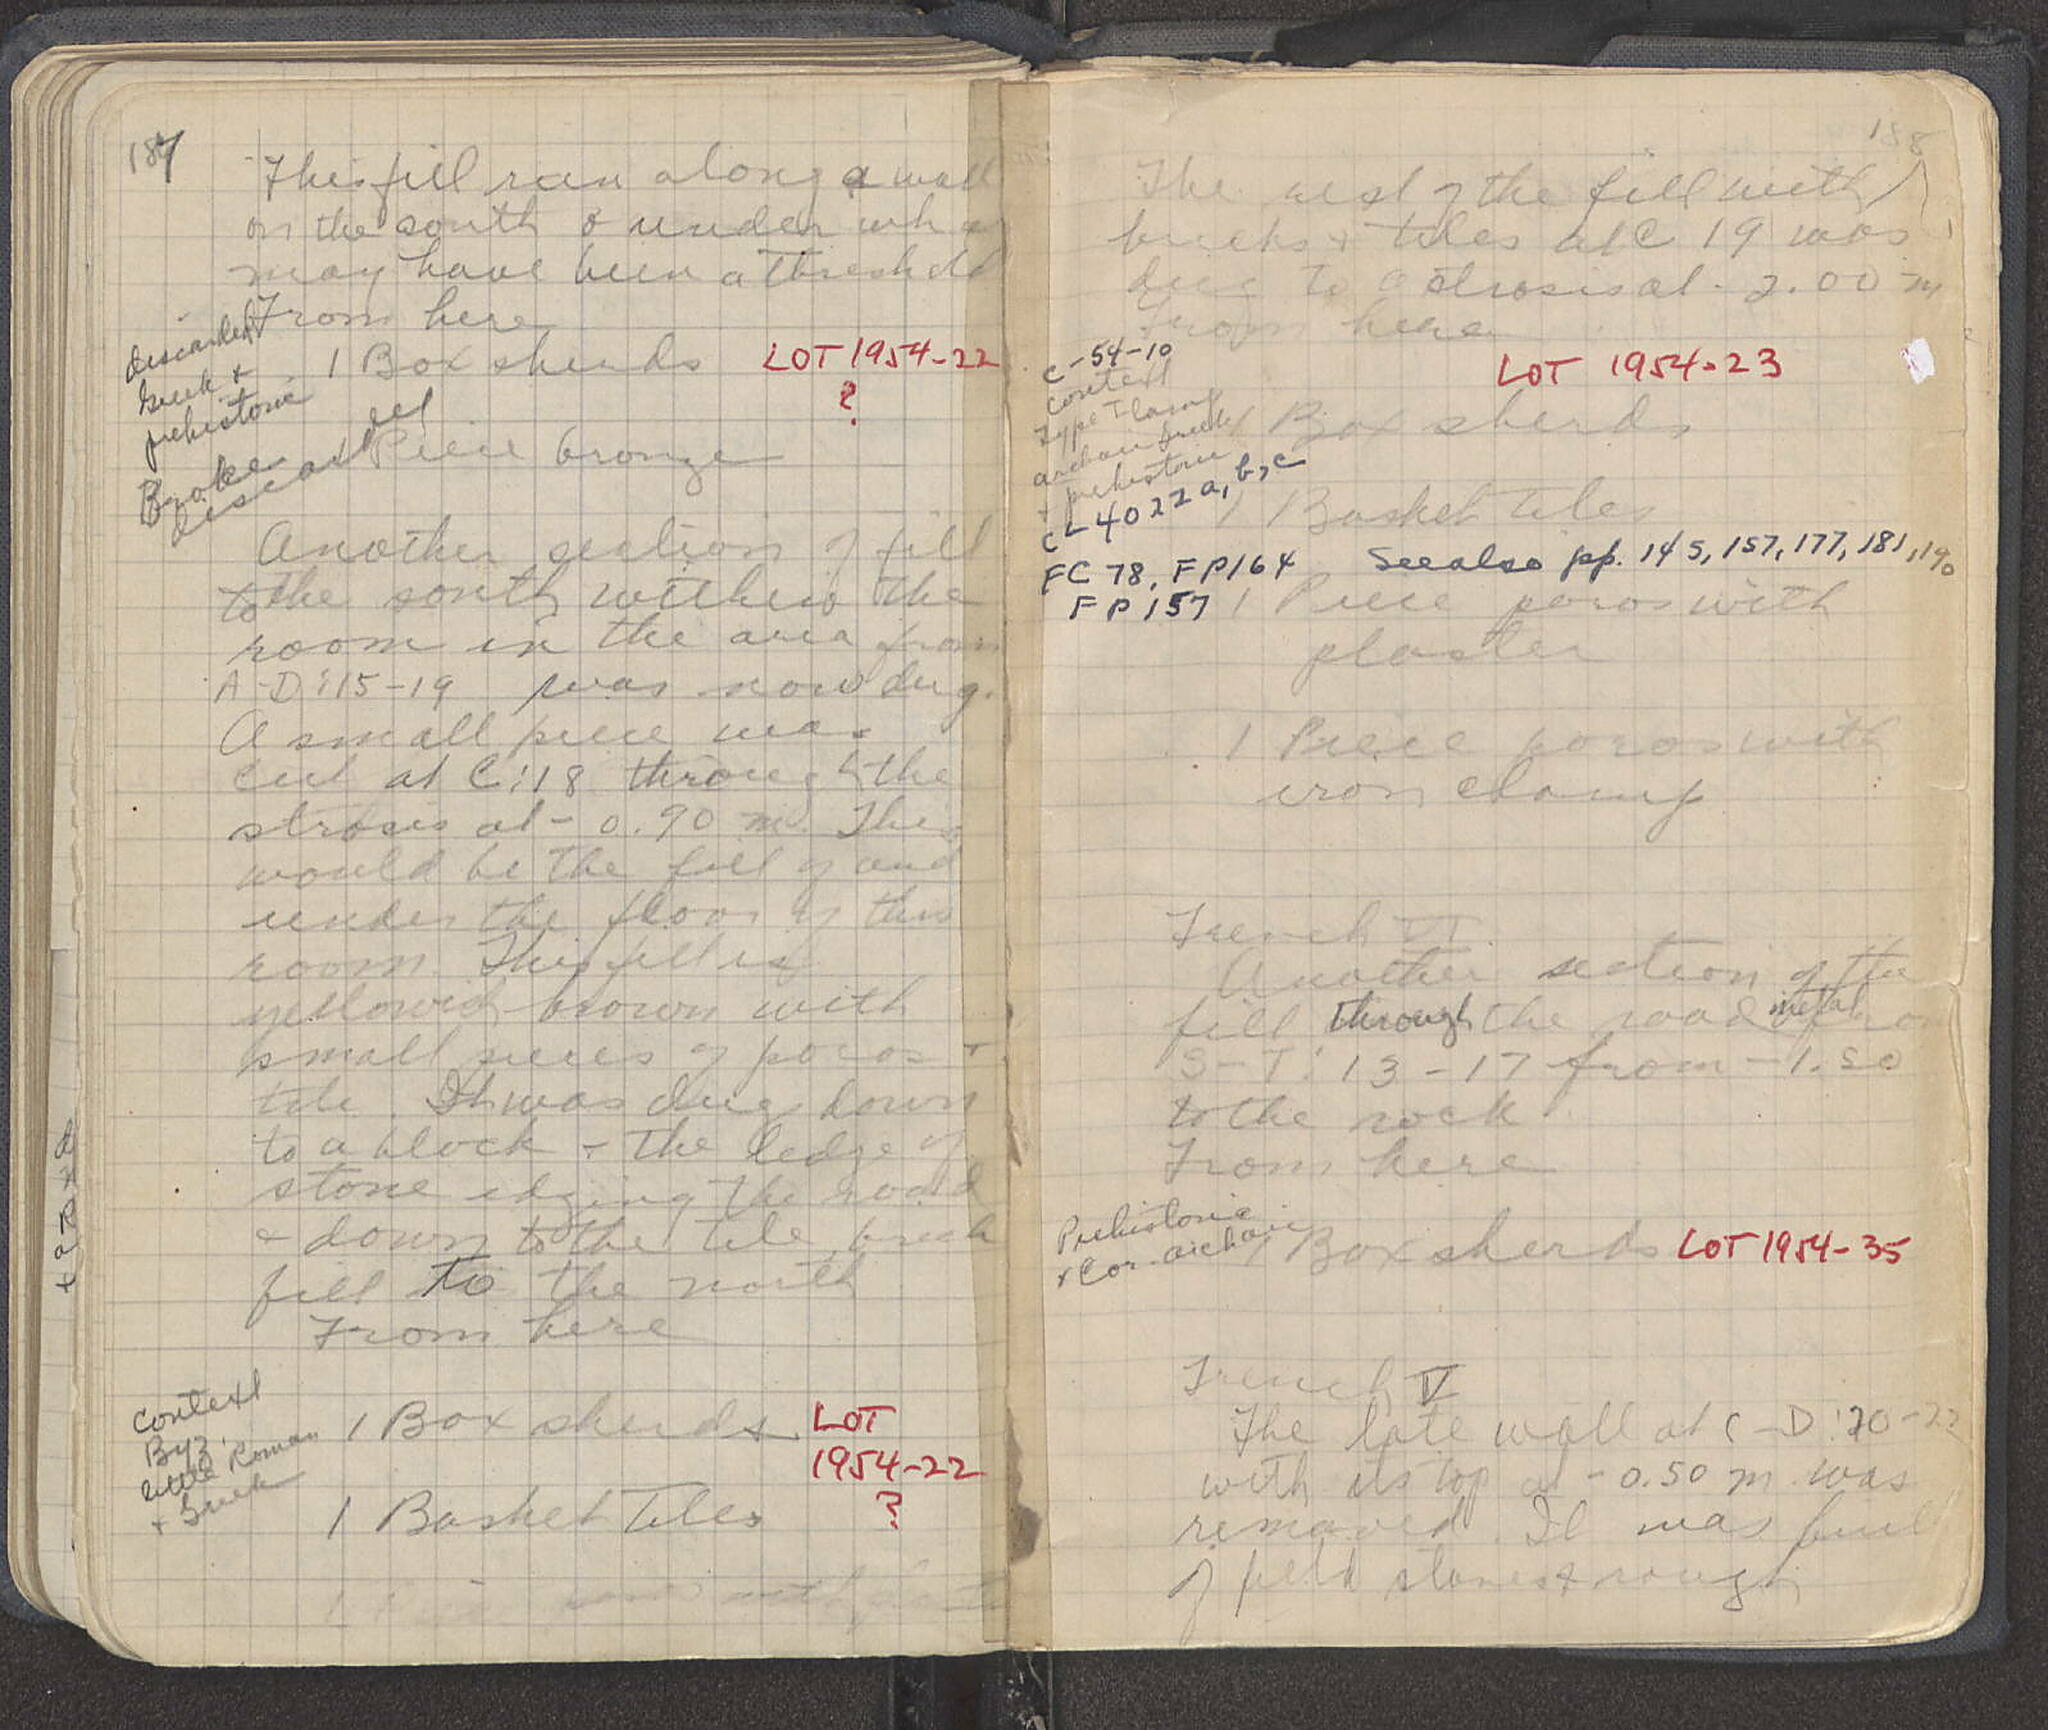 187
This fill ran along a wall
on the south & under wh
may have been a threshold
From here
discarded
Greek +
prehistoric
1 Box sherds LOT 1954-22
?
Broke
discarded
1 Piece bronze
Another section of fill
to the south within the
room in the area from
A-D:15-19 was now dug.
A small piece was
cut at C:18 through the
strosis at - 0.90 m. This
would be the fill of and
under the floor of this
room. This fill is
yellowish brown with
small pieces of poros +
tile. It was dug down
to a block + the ledge of
stone edging the road
+ down to the tile, brick
fill to the north
From here
Context
Byz.
little Roman
+ Greek
1 Box sherds LOT
1954-22
?
1 Basket Tiles
188
The rest of the fill with
bricks + tiles at C 19 was
dug to a strosis at - 2.00 m
From here
LOT 1954-23
C-54-10
context
type I lamp
archaic Greek
+ prehistoric
1 Box sherds
CL 4022 a, b, c
1 Basket tiles
FC 78, FP 164 See also pp. 145, 157, 177, 181, 190
FP 157 1 Piece poros with
plaster
1 Piece poros with
iron clamp
Trench VI
Another section of the
fill through the road metal from
S-T:13-17 from - 1.50
to the rock
From here
Prehistoric
+ Cor. archaic
1 Box sherds LOT 1954-35
Trench V
The late wall at C-D:20-22
with its top at - 0.50 m was
removed. It was built
of field stones + rough